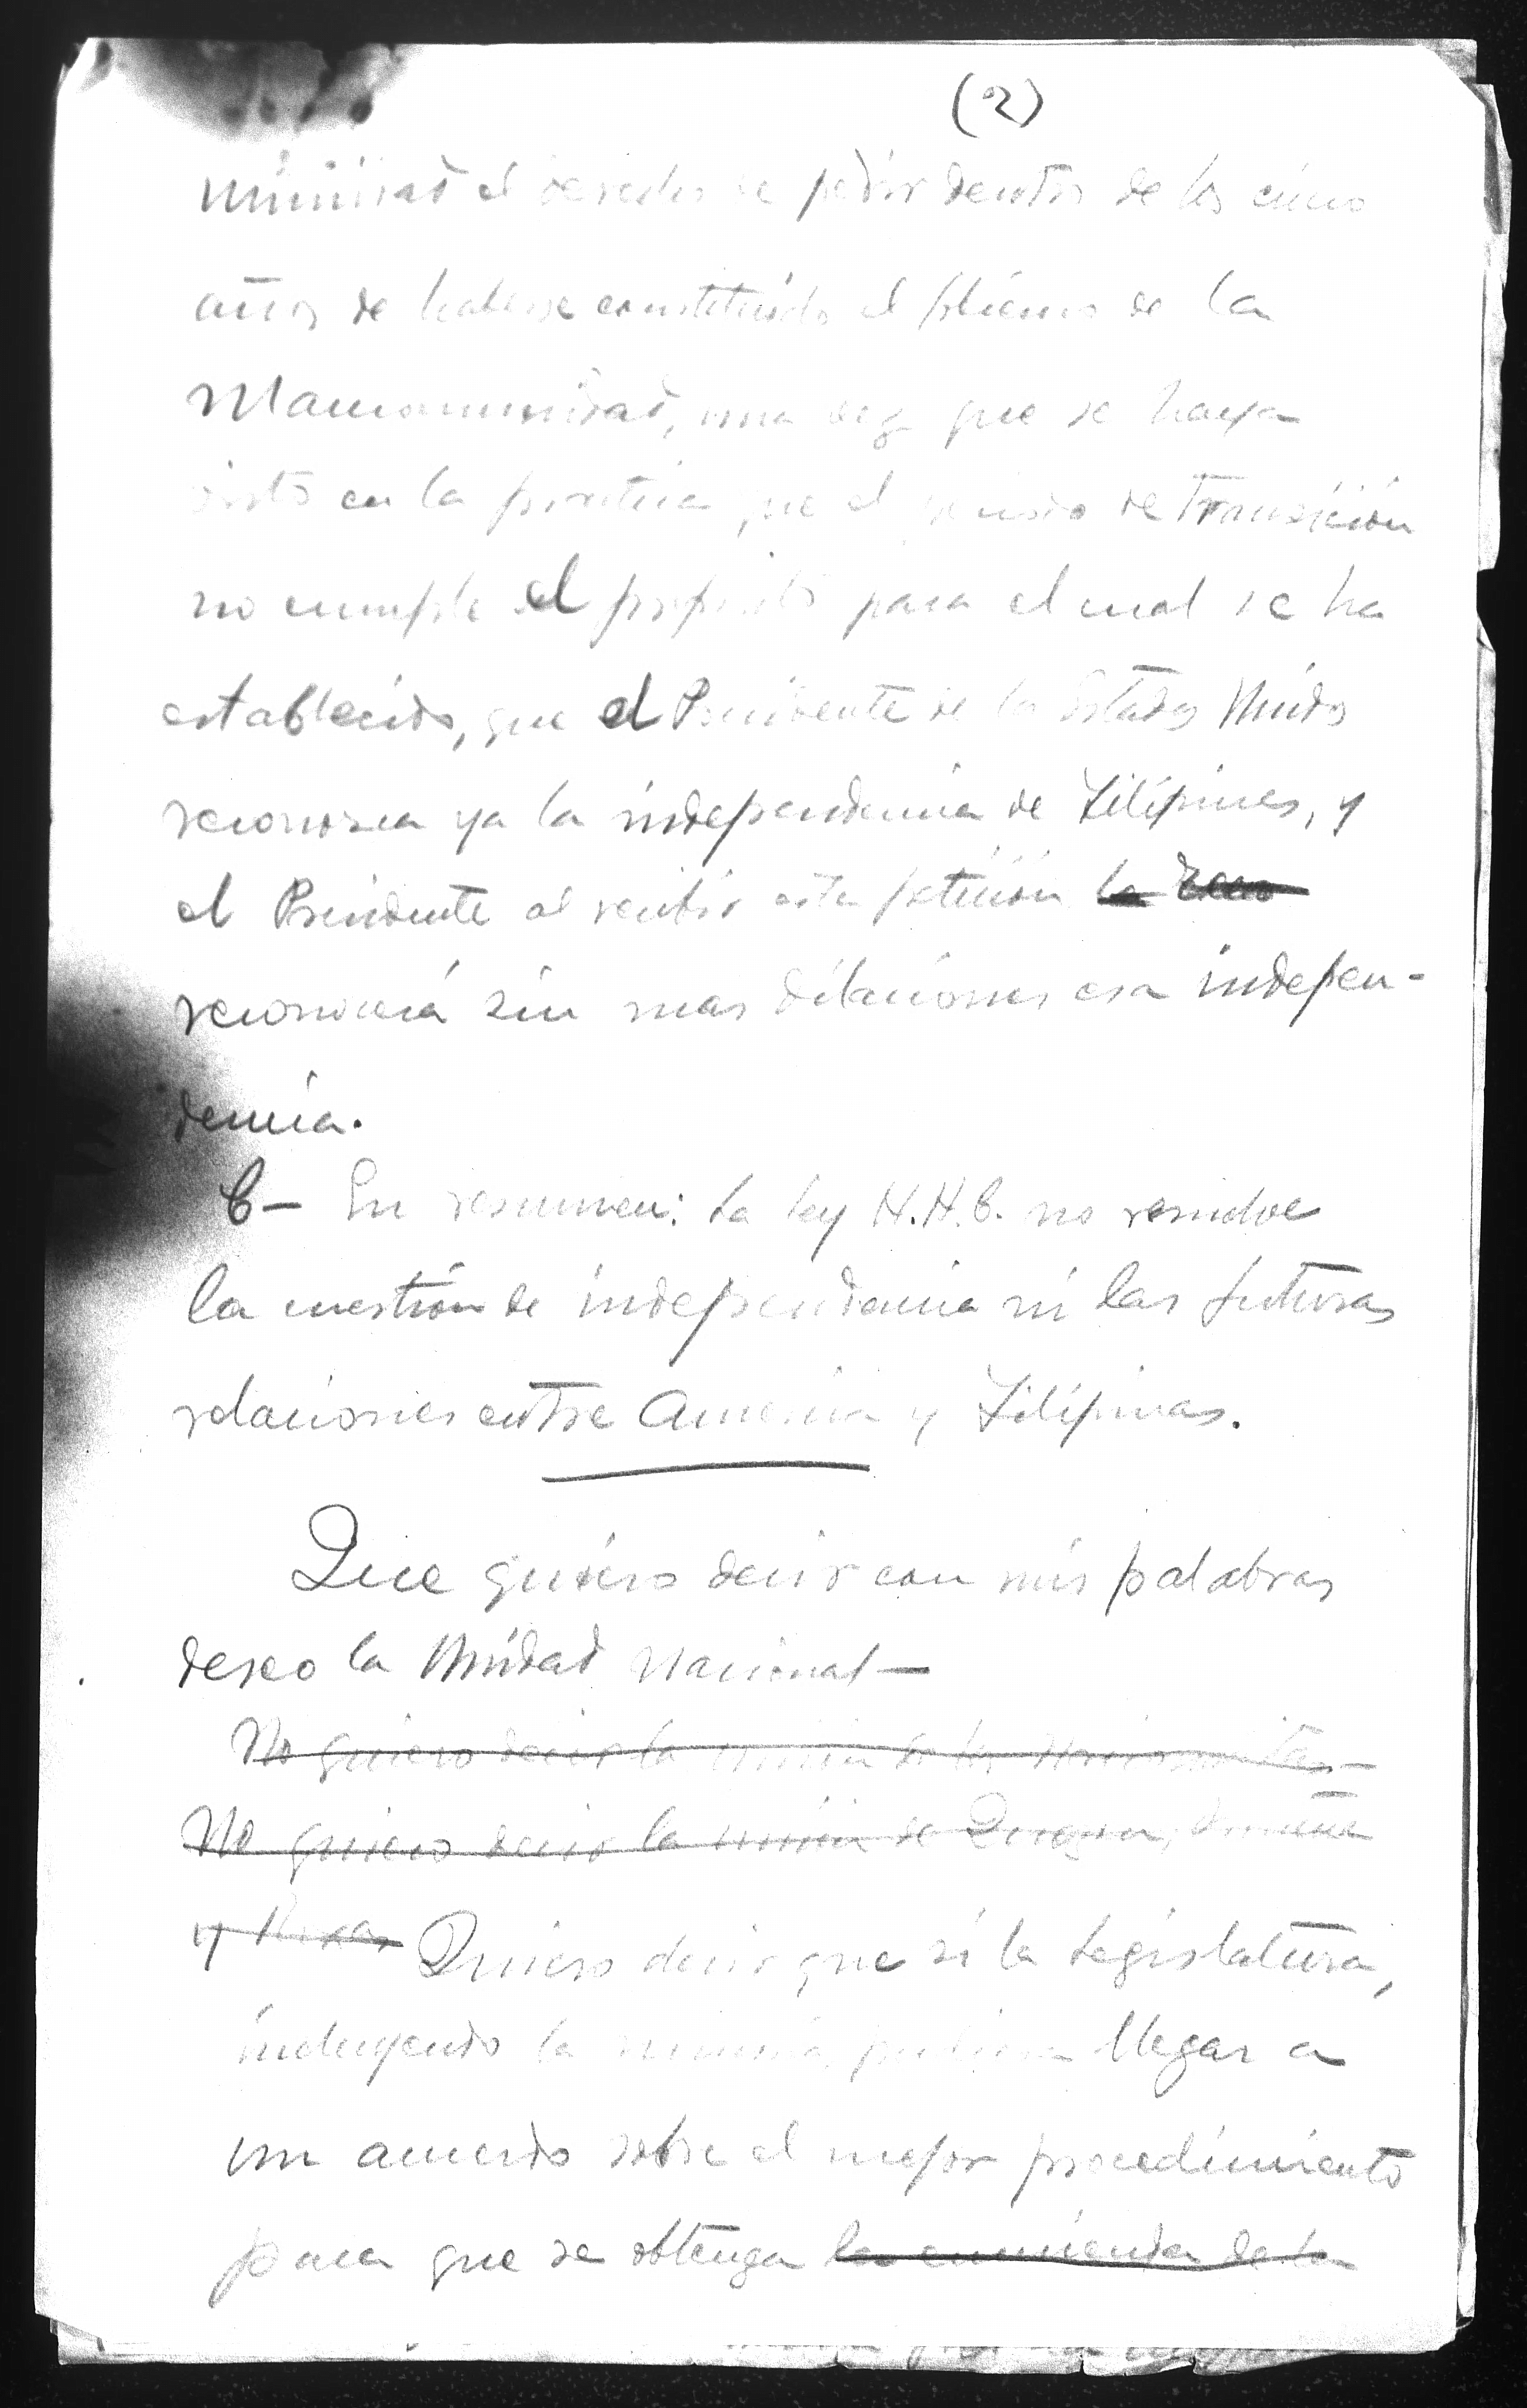 (2)
munidad el derecho de pedir dentro de los cinco
años de haberse constituido el gobierno de la
Mancomunidad, una vez que se haya
visto en la practica que el periodo de transición
no cumple el proposito para el cual se ha
establecido, que el Presidente de los Estados Unidos
reconozca ya la independencia de Filipinas, y
el Presidente al recibir esta petición la
reconocerá sin mas dilaciones esa indepen-
dencia.
C— En resumen: La ley H.H.C. no resuelve
la cuestión de independencia ni las futuras
relaciones entre America y Filipinas.
Que quiero decir con mis palabras
deseo la Unidad Nacional—
No quiero decir la unión de los
No quiero decir la unión de Quezon, Osmeña
y Roxas Quiero decir que si la Legislatura,
incluyendo la minoria, pudiera llegar a
un acuerdo sobre el mejor procedimiento
para que se obtenga la enmienda de la